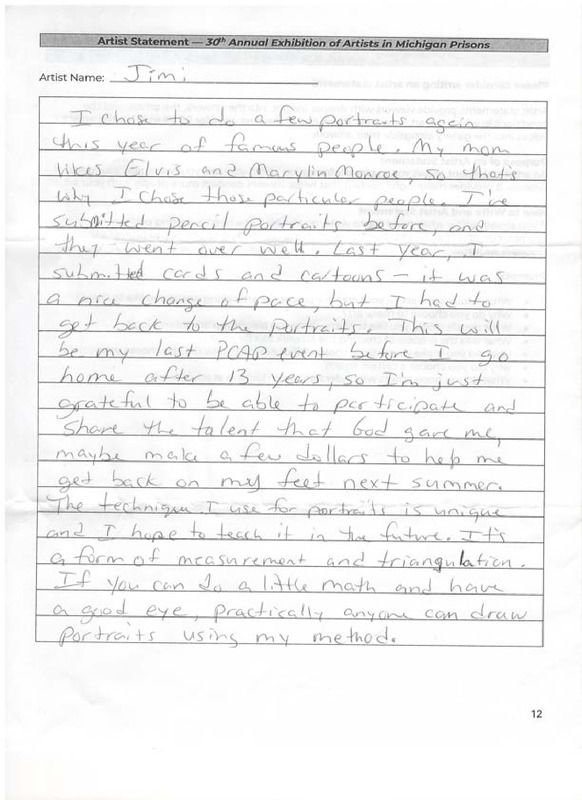 Artist Statement — 30th Annual Exhibition of Artists in Michigan Prisons
Artist Name: Jimi
I chose to do a few portraits again
this year of famous people. My mom
likes Elvis and Marylin Monroe, so thats
why I chose those particular people. I've
submitted pencil portraits before, and
they went over well. Last year, I
submitted cards and cartoons – it was
a nice change of pace, but I had to
get back to the portraits. This will
be my last PCAP event before I go
home after 13 years, so I'm just
grateful to be able to participate and
share the talent that God gave me,
maybe make a few dollars to help me
get back on my feet next summer.
The technique I use for portraits is unique
and I hope to teach it in the future. It's
a form of measurement and triangulation.
If you can do a little math and have
a good eye, practically anyone can draw
portraits using my method.
12